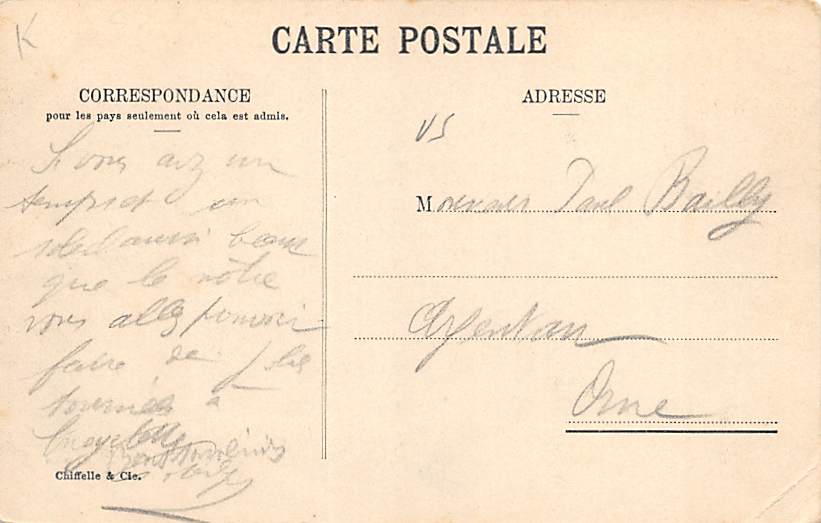 K
CARTE POSTALE
CORRESPONDANCE
pour les pays seulement où cela est admis.
Si vous avez un
temps et un
soleil aussi beau
que le nôtre
vous allez pouvoir
faire de
tournées à
bicyclette
Chiffelle & Cie.
ADRESSE
Monsieur Paul Bailly
Argentan
Orne